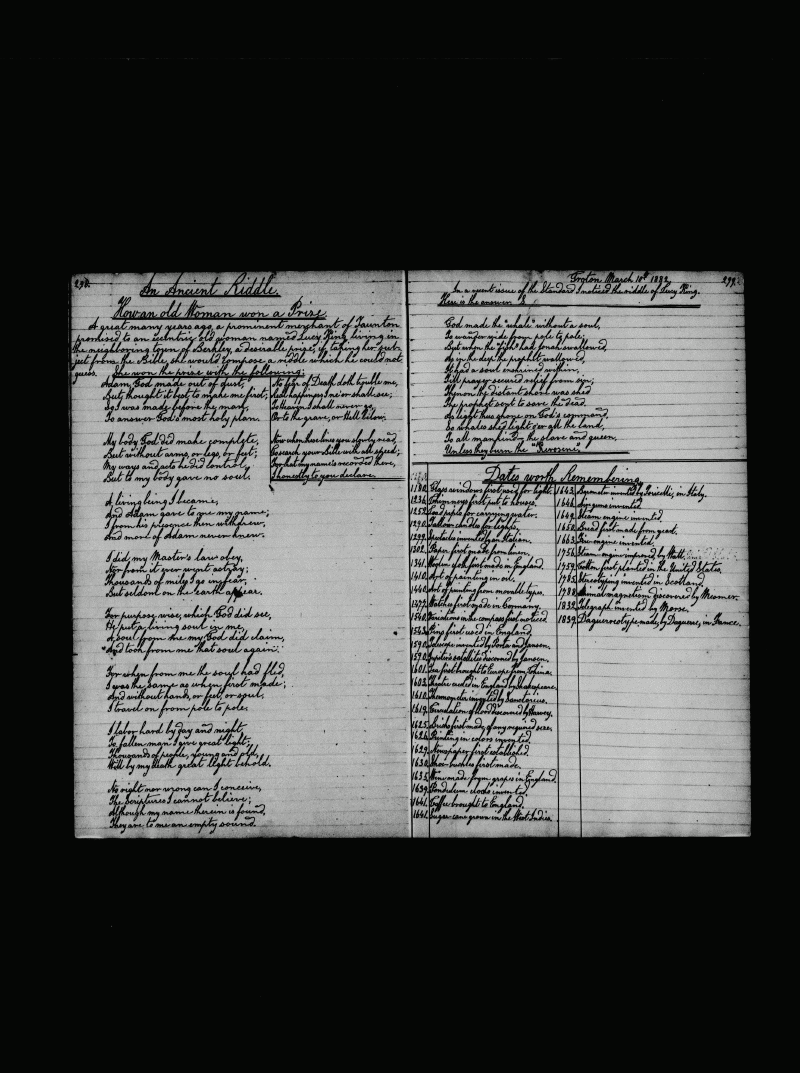 298.
An Ancient Riddle.
How an old Woman won a Prize.
A great many years ago, a prominent merchant of Taunton
promised to an eccentric old woman named Lucy King living in
the neighboring town of Berkley, a desirable prize, if, taking her sub-
ject from the Bible, she would compose a riddle which he could not
guess. She won the prize with the following:
Adam, God made out of dust,
But thought it best to make me first;
So I was made before the man,
To answer God's most holy plan.
My body God did make complete,
But without arms, or legs, or feet;
My ways and acts he did control,
But to my body gave no soul.
A living being I became,
And Adam gave to me my name;
I from his presence then withdrew,
And more of Adam never knew.
I did my Master's law obey,
Nor from it ever went astray;
Thousands of miles I go in fear,
But seldom on the earth appear.
For purpose wise, which God did see,
He put a living soul in me,
A soul from me my God did claim,
And took from me that soul again.
For when from me the soul had fled,
I was the same as when first made;
And without hands, or feet, or soul,
I travel on from pole to pole.
I labor hard by day and night,
To fallen man I give great light;
Thousands of people, young and old,
Will by my death great light behold.
No right nor wrong can I conceive,
The Scriptures I cannot believe;
Although my name therein is found,
They are to me an empty sound.
No fear of Death doth trouble me,
Real happiness I ne'er shall see;
To Heaven I shall never go,
Or to the grave, or Hell below.
Now when these lines you slowly read,
Go search your Bible with all speed;
For that my name's recorded there,
I honestly to you declare.
299.
Groton March 10th 1882.
In a recent issue of the Standard I noticed the riddle of Lucy King.
Here is the answer
God made the "whale" without a soul,
To wander wide from pole to pole;
But when the fish had Jonah swallowed
As in the deep the prophet wallowed,
It had a soul enshrined within,
Till prayer secured relief from sin;
When on the distant shore was shed
The prophet sent to save the dead.
As light thus shone on God's command,
So whales shed light o'er all the land,
To all mankind, the slave and queen,
Unless they burn the "Kerosene".
Dates worth Remembering.
1180. Glass windows first used for light.
1236. Chimneys first put to houses.
1252. Lead pipes for carrying water.
1290. Tallow candles for lights.
1299. Spectacles invented by an Italian.
1302. Paper first made from linen.
1341. Woolen cloth first made in England.
1410. Art of painting in oil.
1440. Art of printing from movable types.
1477. Watches first made in Germany.
1540. Variations in the compass first noticed.
1543. Pins first used in England.
1590. Telescope invented by Porta and Jansen.
1590. Jupiter's satellites discovered by Jansen.
1601. Tea first brought to Europe from China.
1603. Theatre erected in England by Shakespeare.
1610. Thermometer invented by Sanctorius.
1619. Circulation of blood discovered by Harvey.
1625. Bricks first made of any required size.
1626. Printing in colors invented.
1629. Newspaper first established.
1630. Shoe-buckles first made.
1635. Wine made from grapes in England.
1639. Pendulum clocks invented.
1641. Coffee brought to England.
1641. Sugar cane grown in the West Indies.
1643. Barometer invented by Toricelli, in Italy.
1646. Air guns invented.
1649. Steam engine invented.
1650. Bread first made from yeast.
1663. Fire engine invented.
1756. Steam engine improved by Watt.
1759. Cotton first planted in the United States.
1785. Stereotyping invented in Scotland.
1788. Animal magnetism discovered by Mesmer.
1832. Telegraph invented by Morse.
1839. Daguerreotype made, by Daguerre, in France.